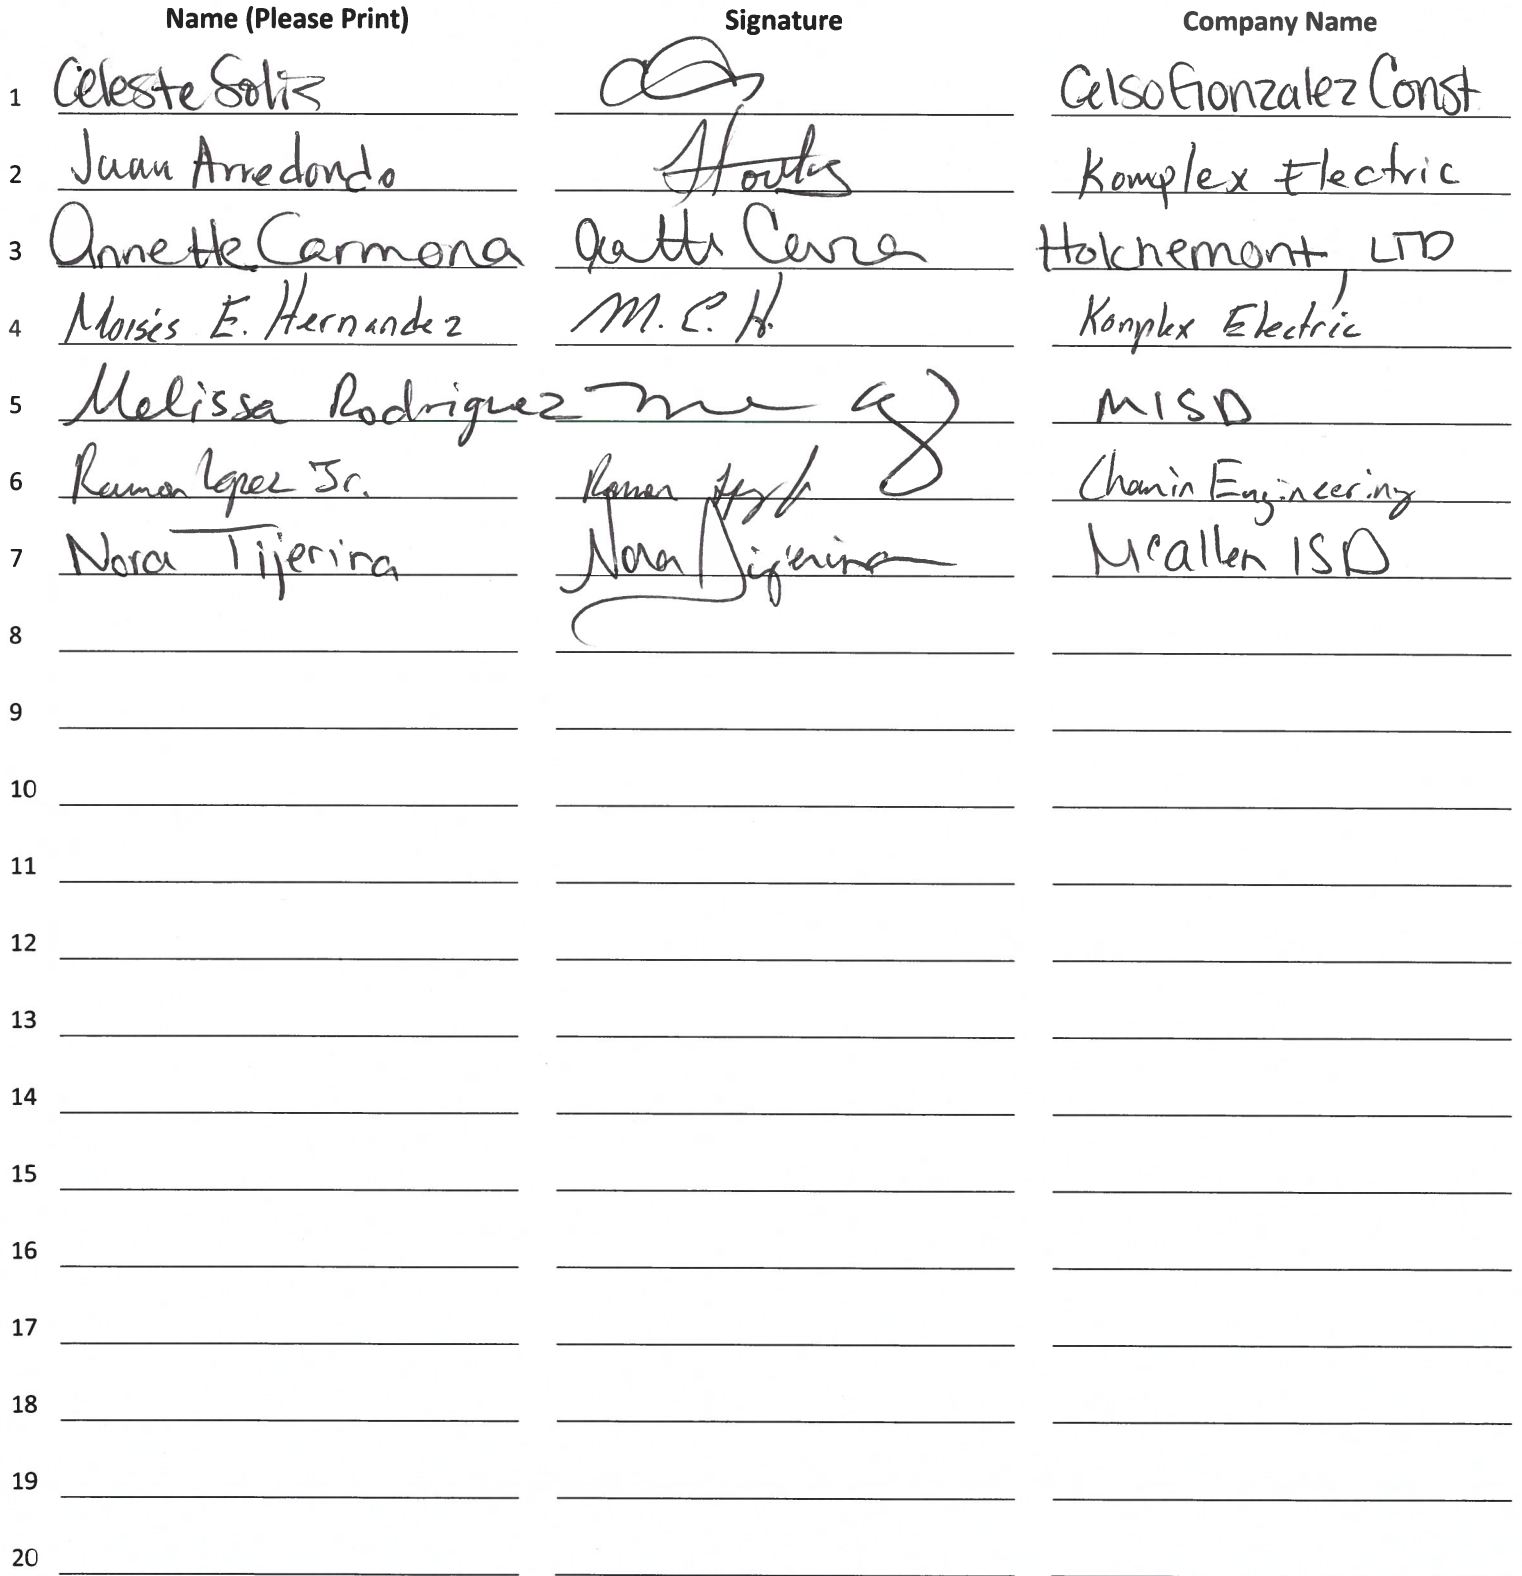 Name (Please Print) Signature Company Name
1 Celeste Solis Celso Gonzalez Const
2 Juan Arredondo Komplex Electric
3 Annette Carmona Holchemont, LTD
4 Moises E. Hernandez M. E. H. Komplex Electric
5 Melissa Rodriguez MISD
6 Ramon Lopez Jr. Ramon Chanin Engineering
7 Nora Tijerina Nora Tijerina McAllen ISD
8
9
10
11
12
13
14
15
16
17
18
19
20